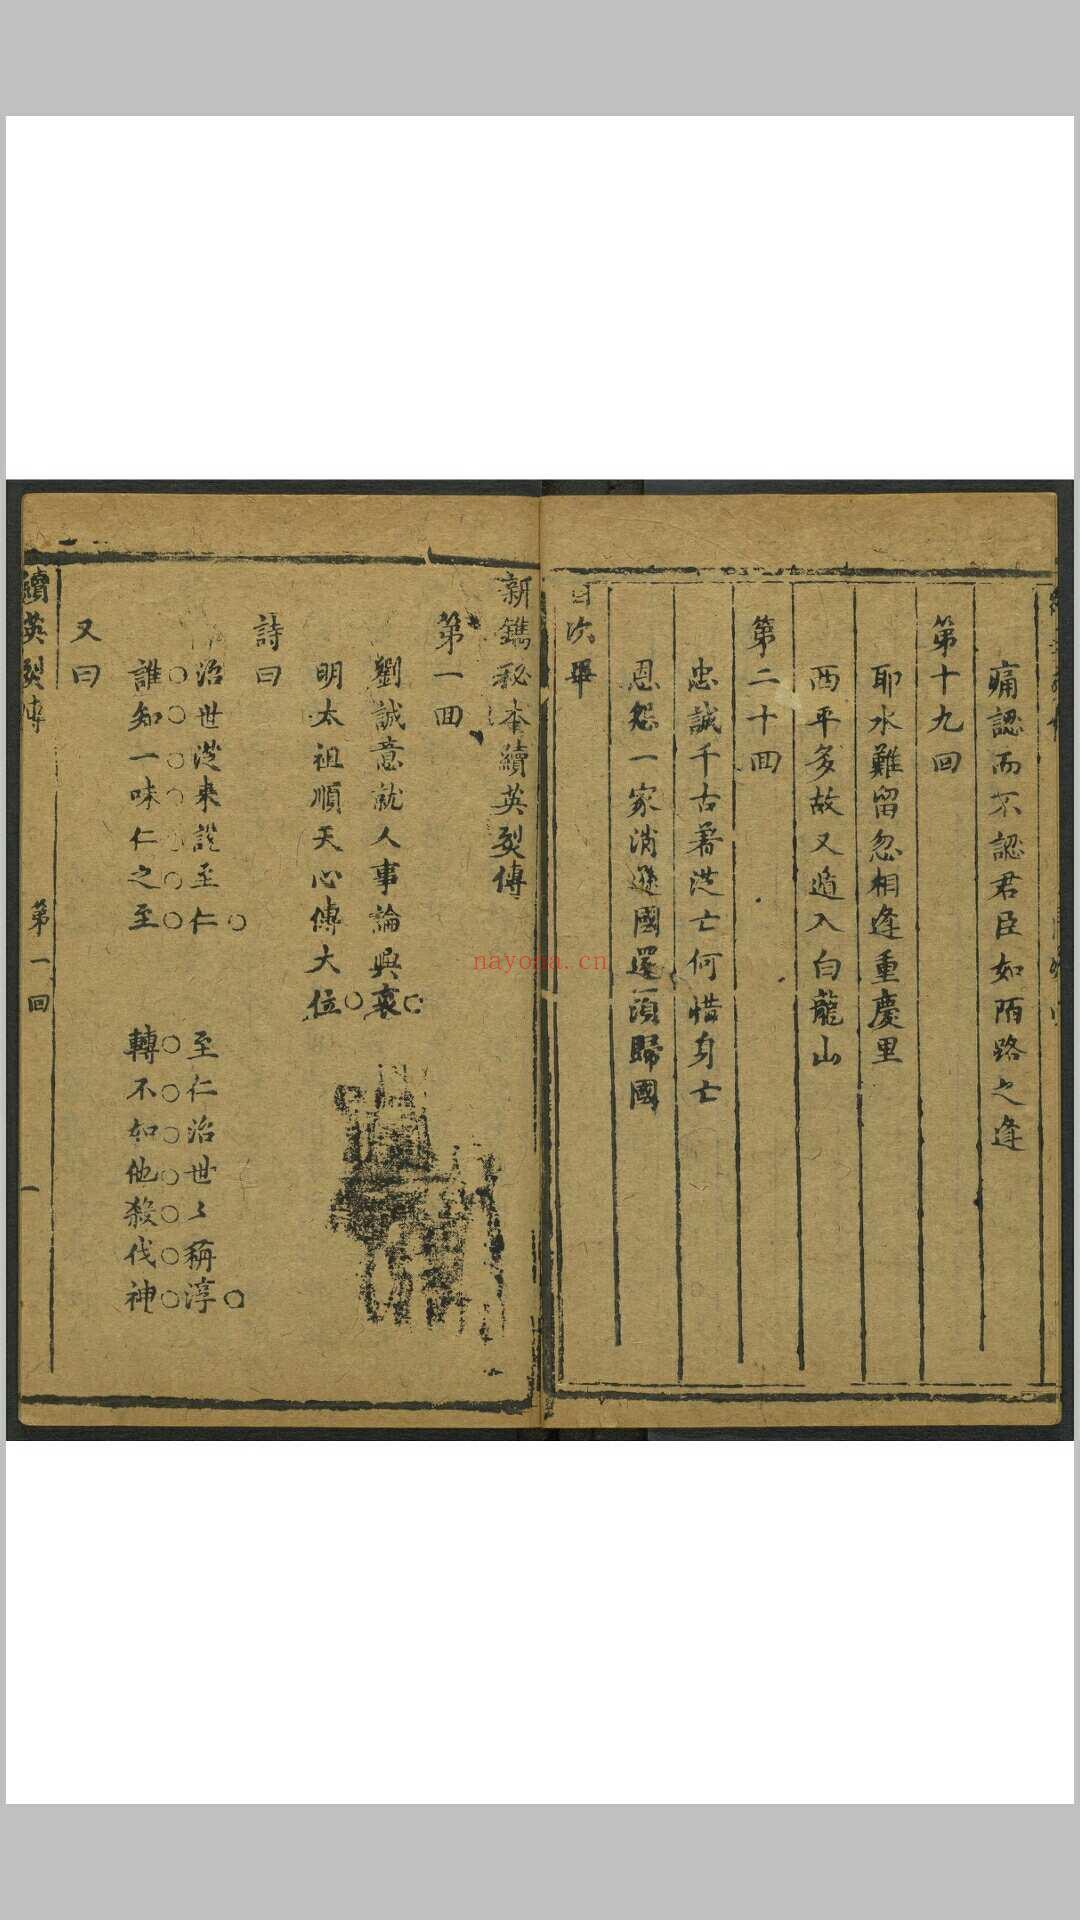 痛認而不認君臣如陌路之逢
第十九回
耶水難留忽相逢重慶里
西平多故又遁入白龍山
第二十回
忠誠千古著從亡何惜身亡
恩怨一家消遜國還須歸國
目次畢
新鐫秘本續英烈傳
第一回
劉誠意就人事論興衰
明太祖順天心傳大位
詩曰
治世從來說至仁 至仁治世〻稱淳
誰知一味仁之至 轉不如他殺伐神
又曰
續英烈傳 第一回 一
nayona.cn